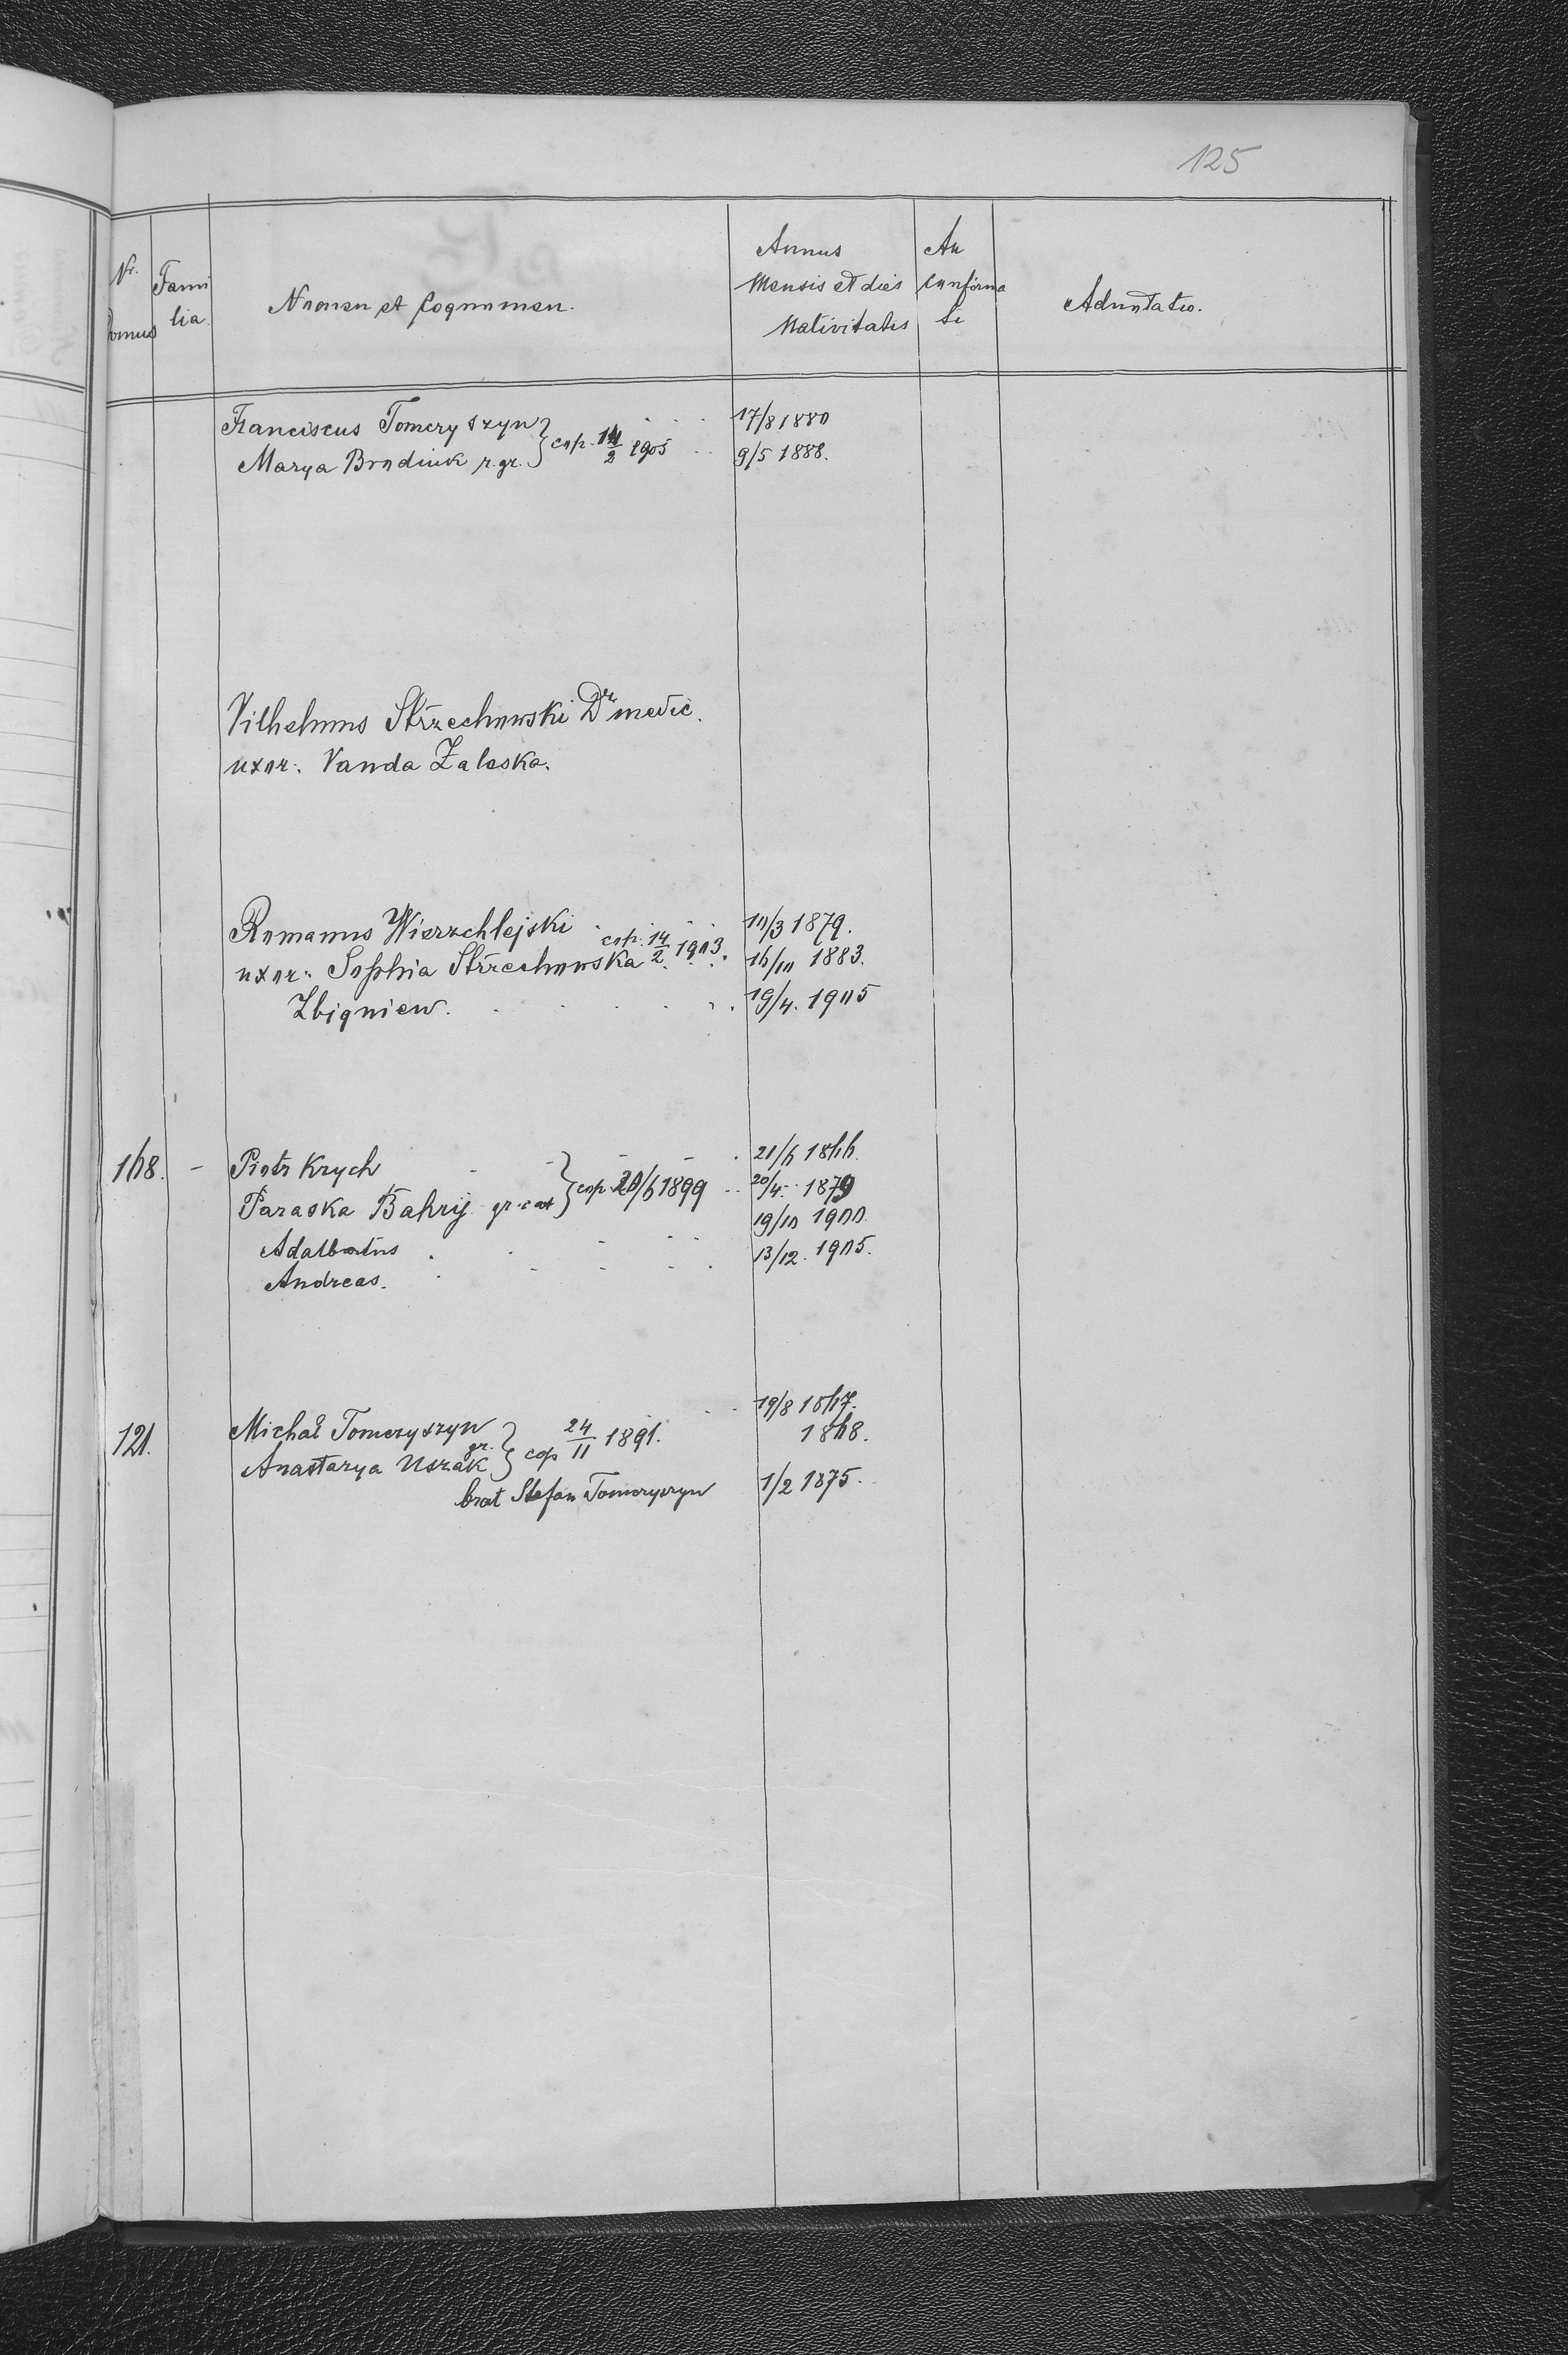 125
Nr. Domus
Fami lia
Nomen et Cognomen.
Annus Mensis et dies Nativitatis
An confirma ti
Adnotatio.
Franciscus Tomeryszyn 17/8 1880
Marya Brodiuk r. gr. } cop. 14/2 1905 9/5 1888.
Vilhelmus Strzechowski Dr medic.
uxor: Vanda Zaleska.
Romanus Wierzchlejski 10/3 1879.
uxor: Sophia Strzechowska cop. 14/2 1903. 16/10 1883.
Zbigniew. 19/4. 1905
168. - Piotr Krych 21/6 1866
Paraska Bahrij gr. cat } cop. 20/6 1899 20/4. 1879
Adalbertus 19/10 1900
Andreas. 13/12. 1905.
121. Michał Tomeryszyn 19/8 1867.
Anastazya Uszak gr. } cop 24/11 1891. 1868.
brat Stefan Tomeryszyn 1/2 1875.